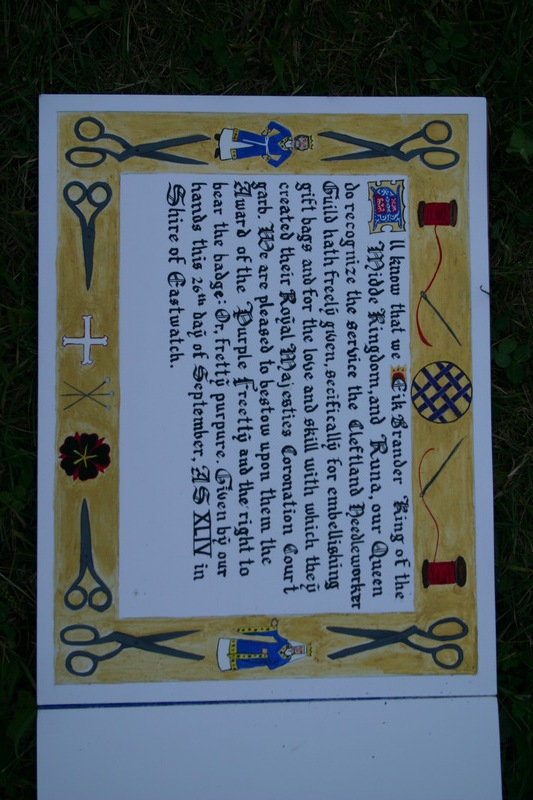 All know that we Eik Brander King of the
Midde Kingdom, and Runa, our Queen
do recognize the service the Cleftland Needleworker
Guild hath freely given, secifically for embellishing
gift bags and for the love and skill with which they
created their Royal Majesties Coronation Court
garb. We are pleased to bestow upon them the
Award of the Purple Freetty and the right to
bear the badge: Or, fretty purpure. Given by our
hands this 26th day of September, AS XLIV in
Shire of Eastwatch.